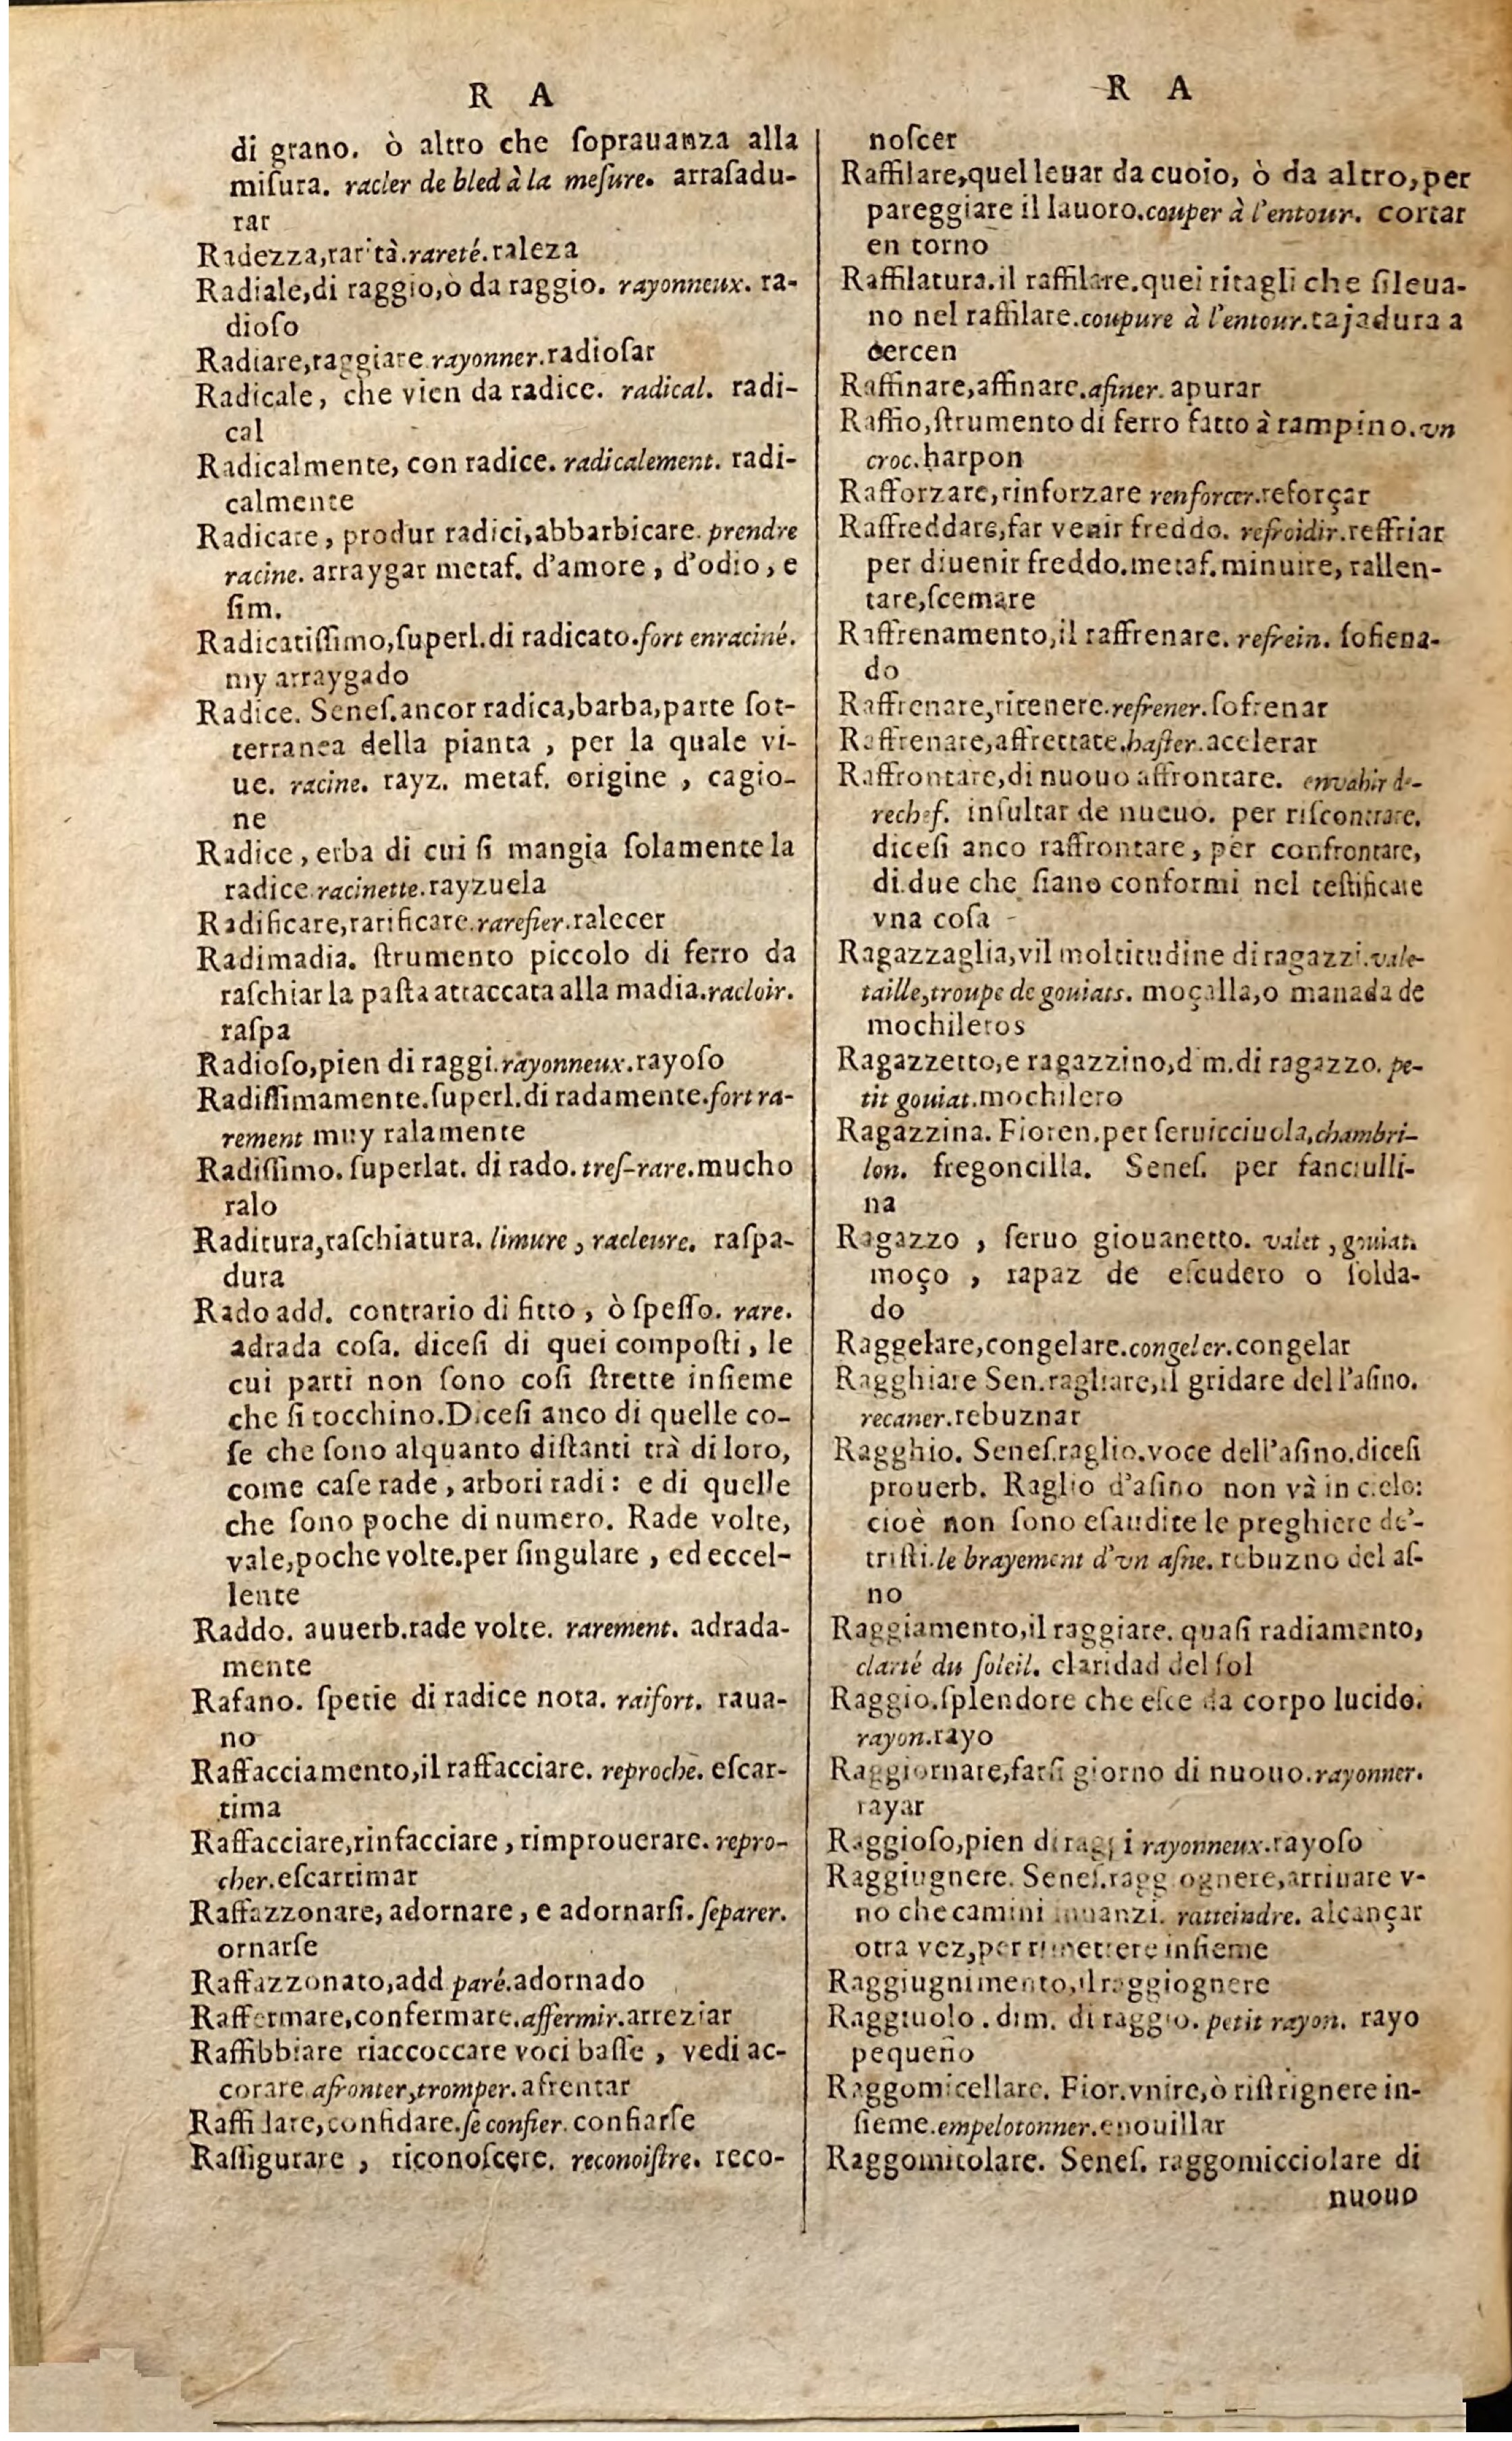 R A
di grano. ò altro che ſoprauanza alla
miſura. racler de bled à la meſure. arraſadu-
rar
Radezza,rarità.rareté.raleza
Radiale,di raggio,ò da raggio. rayonneux. ra-
dioſo
Radiare,raggiare rayonner.radioſar
Radicale, che vien da radice. radical. radi-
cal
Radicalmente, con radice. radicalement. radi-
calmente
Radicare, produr radici,abbarbicare. prendre
racine. arraygar metaf. d'amore, d'odio, e
ſim.
Radicatiſſimo,ſuperl.di radicato.fort enraciné.
my arraygado
Radice. Seneſ.ancor radica,barba,parte ſot-
terranea della pianta, per la quale vi-
ue. racine. rayz. metaf. origine, cagio-
ne
Radice, erba di cui ſi mangia ſolamente la
radice.racinette.rayzuela
Radificare,rarificare.rarefier.ralecer
Radimadia. ſtrumento piccolo di ferro da
raſchiar la paſta attaccata alla madia.racloir.
raſpa
Radioſo,pien di raggi.rayonneux.rayoſo
Radiſſimamente.ſuperl.di radamente.fort ra-
rement muy ralamente
Radiſſimo. ſuperlat. di rado. treſ-rare.mucho
ralo
Raditura,raſchiatura. limure, racleure. raſpa-
dura
Rado add. contrario di fitto, ò ſpeſſo. rare.
adrada coſa. diceſi di quei compoſti, le
cui parti non ſono coſi ſtrette inſieme
che ſi tocchino.Diceſi anco di quelle co-
ſe che ſono alquanto diſtanti trà di loro,
come caſe rade, arbori radi: e di quelle
che ſono poche di numero. Rade volte,
vale,poche volte.per ſingulare, ed eccel-
lente
Raddo. auuerb.rade volte. rarement. adrada-
mente
Rafano. ſpetie di radice nota. raifort. raua-
no
Raffacciamento,il raffacciare. reproche. eſcar-
tima
Raffacciare,rinfacciare, rimprouerare. repro-
cher.eſcartimar
Raffazzonare, adornare, e adornarſi. ſeparer.
ornarſe
Raffazzonato,add paré.adornado
Raffermare,confermare.affermir.arreziar
Raffibbiare riaccoccare voci baſſe, vedi ac-
corare.afronter,tromper.afrentar
Raffidare,confidare.ſe confier.confiarſe
Raffigurare, riconoſcere. reconoiſtre. reco-
R A
noſcer
Raffilare,quel leuar da cuoio, ò da altro,per
pareggiare il lauoro.couper à l'entour. cortar
en torno
Raffilatura.il raffilare.quei ritagli che ſi leua-
no nel raffilare.coupure à l'entour.tajadura a
cercen
Raffinare,affinare.afiner. apurar
Raffio,ſtrumento di ferro fatto à rampino.vn
croc.harpon
Rafforzare,rinforzare renforcer.reforçar
Raffreddare,far venir freddo. refroidir.reffriar
per diuenir freddo.metaf.minuire, rallen-
tare,ſcemare
Raffrenamento,il raffrenare. refrein. ſofiena-
do
Raffrenare,ritenere.refrener.ſofrenar
Raffrenare,affrettate.haſter.acelerar
Raffrontare,di nuouo affrontare. envahir de-
rechef. inſultar de nueuo. per riſcontrare.
diceſi anco raffrontare, per confrontare,
di.due che ſiano conformi nel teſtificare
vna coſa
Ragazzaglia,vil moltitudine di ragazzi.vale-
taille,troupe de gouiats. moçalla,o manada de
mochileros
Ragazzetto,e ragazzino,dim.di ragazzo. pe-
tit gouiat.mochilero
Ragazzina. Fioren.per ſeruicciuola,chambri-
lon. fregoncilla. Seneſ. per fanciulli-
na
Ragazzo, ſeruo giouanetto. valet, gouiat.
moço, rapaz de eſcudero o ſolda-
do
Raggelare,congelare.congeler.congelar
Ragghiare Sen.ragliare,il gridare dell'aſino.
recaner.rebuznar
Ragghio. Seneſ.raglio.voce dell'aſino.diceſi
prouerb. Raglio d'aſino non và in cielo:
cioè non ſono eſaudite le preghiere de'-
triſti.le brayement d'vn aſne. rebuzno del aſ-
no
Raggiamento,il raggiare. quaſi radiamento,
clarté du ſoleil. claridad del ſol
Raggio.ſplendore che eſce da corpo lucido.
rayon.rayo
Raggiornare,farſi giorno di nuouo.rayonner.
rayar
Raggioſo,pien di raggi rayonneux.rayoſo
Raggiugnere. Seneſ.raggiognere,arriuare v-
no che camini innanzi. ratteindre. alcançar
otra vez,per rimettere inſieme
Raggiugnimento,il raggiognere
Raggiuolo. dim. di raggio. petit rayon. rayo
pequeño
Raggomicellare. Fior.vnire,ò riſtrignere in-
ſieme.empelotonner.enouillar
Raggomitolare. Seneſ. raggomicciolare di
nuouo